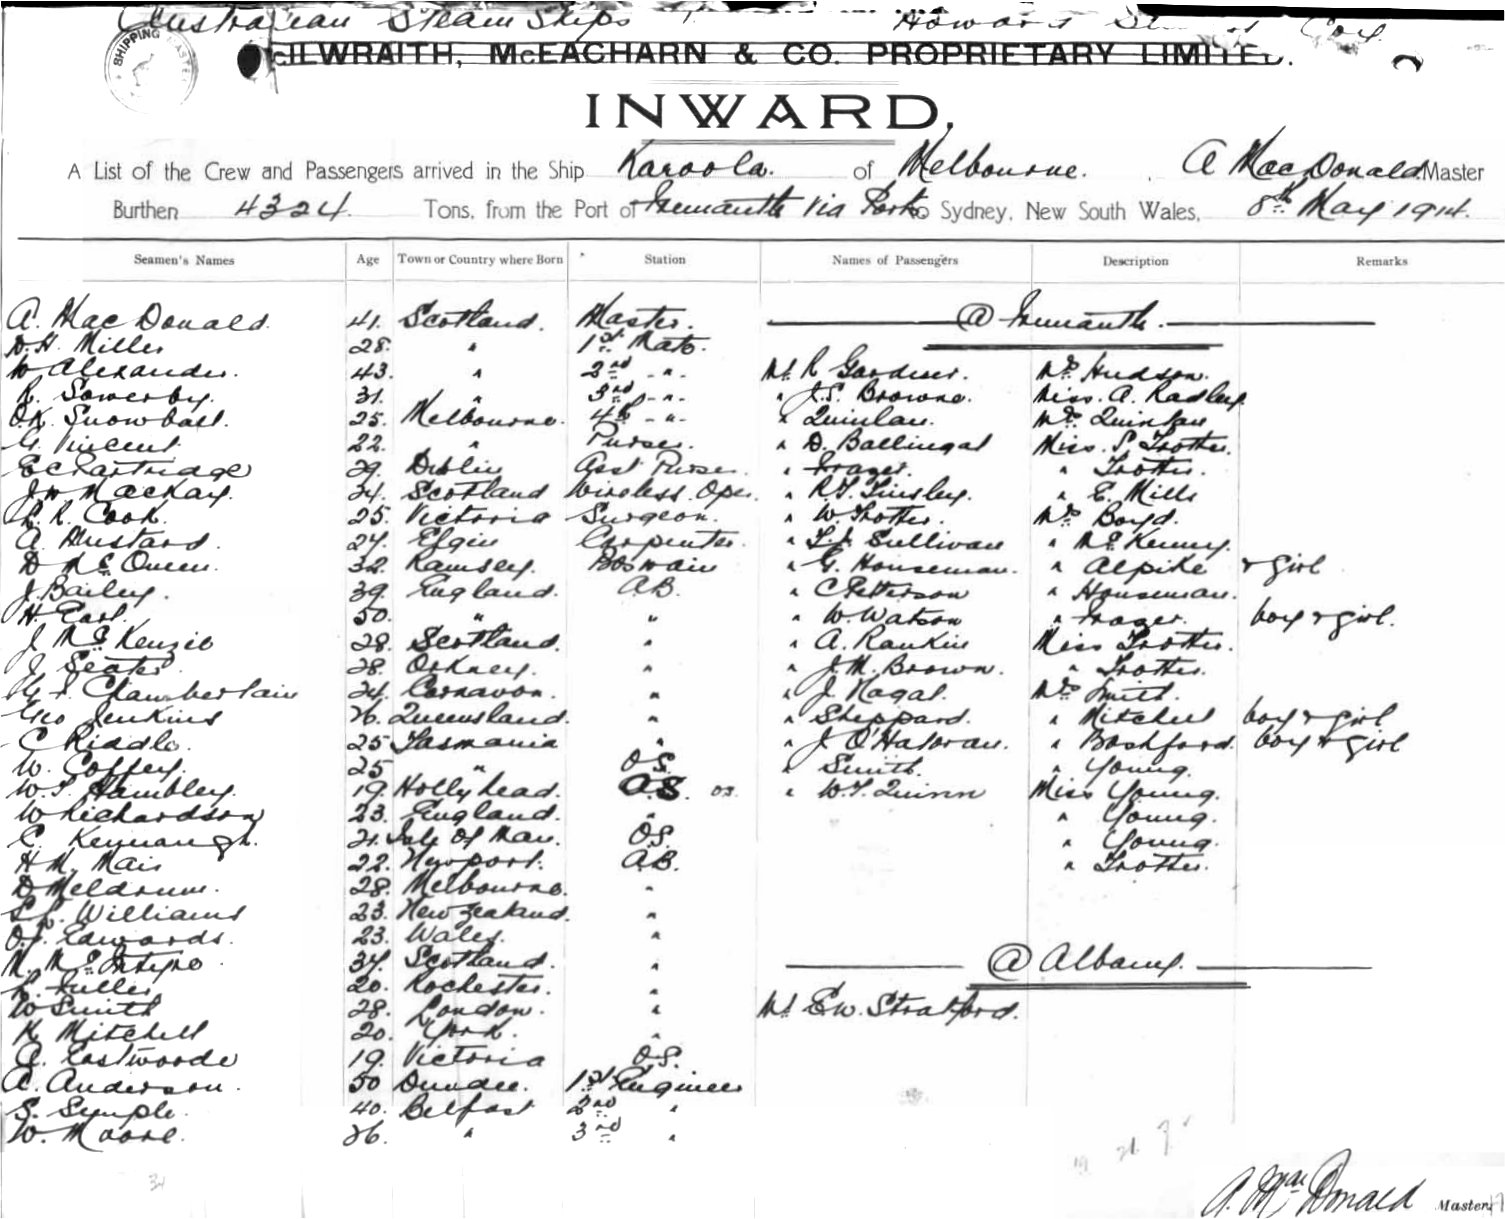 Australian Steam Ships Howard Smith Coy.
SHIPPING MASTER
McILWRAITH, McEACHARN & CO. PROPRIETARY LIMITED.
INWARD.
A List of the Crew and Passengers arrived in the Ship Karoola. of Melbourne. A MacDonald. Master
Burthen 4324. Tons, from the Port of Fremantle via Ports to Sydney, New South Wales, 8th May 1914.
Seamen's Names Age Town or Country where Born Station Names of Passengers Description Remarks
A. MacDonald. 41. Scotland. Master. @ Fremantle.
D.H. Miller 28. " 1st Mate.
W Alexander. 43. " 2nd - " - Mr R Gardiner. Mrs Hudson.
R. Sowerby. 31. " 3rd - " - " J.S. Browne. Miss. A. Radley
O.K. Snowball. 25. Melbourne. 4th - " - " Quinlan. Mrs Quinlan
G. Vincent 22. " Purser. " D. Ballingal Miss. S Trotter.
E C Partridge 29. Dublin Asst Purser. " Frazer. " Trotter.
J.W. Mackay. 24. Scotland Wireless Oper. " R.T. Tinsley. " E. Mills
L. R. Cook. 25. Victoria Surgeon. " W. Trotter. Mrs Boyd.
A Mustard. 27. Elgin Carpenter. " T.J. Sullivan " McKenny.
D McQueen. 32. Ramsey. Boswain " G. Houseman. " Alpike & girl
J. Bailey. 39. England. AB. " C Petterson " Houseman.
H. Earl. 50. " " " W. Watson " Frazer. boy & girl.
J McKenzie 28. Scotland. " " A. Rankin Miss Trotter.
J Seater 28. Orkney. " " J.M. Brown. " Trotter.
Chamberlain 24. Carnavon. " " J. Nagal. Mrs Smith.
Geo Jenkins 26. Queensland. " " Sheppard. " Mitchell boy & girl
C Riddle. 25 Tasmania " " J. O'Haloran. " Boshford. boy & girl
W. Coffey. 25 " OS. " Smith. " Young.
W.T. Hambley. 19. Hollyhead. OS. " W.T. Quinn Miss Young.
W Richardson 23. England. " " Young.
C. Kennaugh. 21. Isle of Man. OS. " Young.
H M. Mair 22. Newport. AB. " Trotter.
D Meldrum. 28. Melbourne. "
Williams 23. New Zealand. "
O.J. Edwards. 23. Wales. "
N. McIntyre. 34. Scotland. " @ Albany.
L. Fuller 20. Rochester. "
W Smith 28. London. " Mr E.W. Stratford.
K Mitchell 20. York. "
A. Eastwoode 19. Victoria OS.
A. Anderson. 50 Dundee. 1st Engineer
S. Semple. 40. Belfast 2nd "
W. Moore. 26. " 3rd "
A. MacDonald Master.